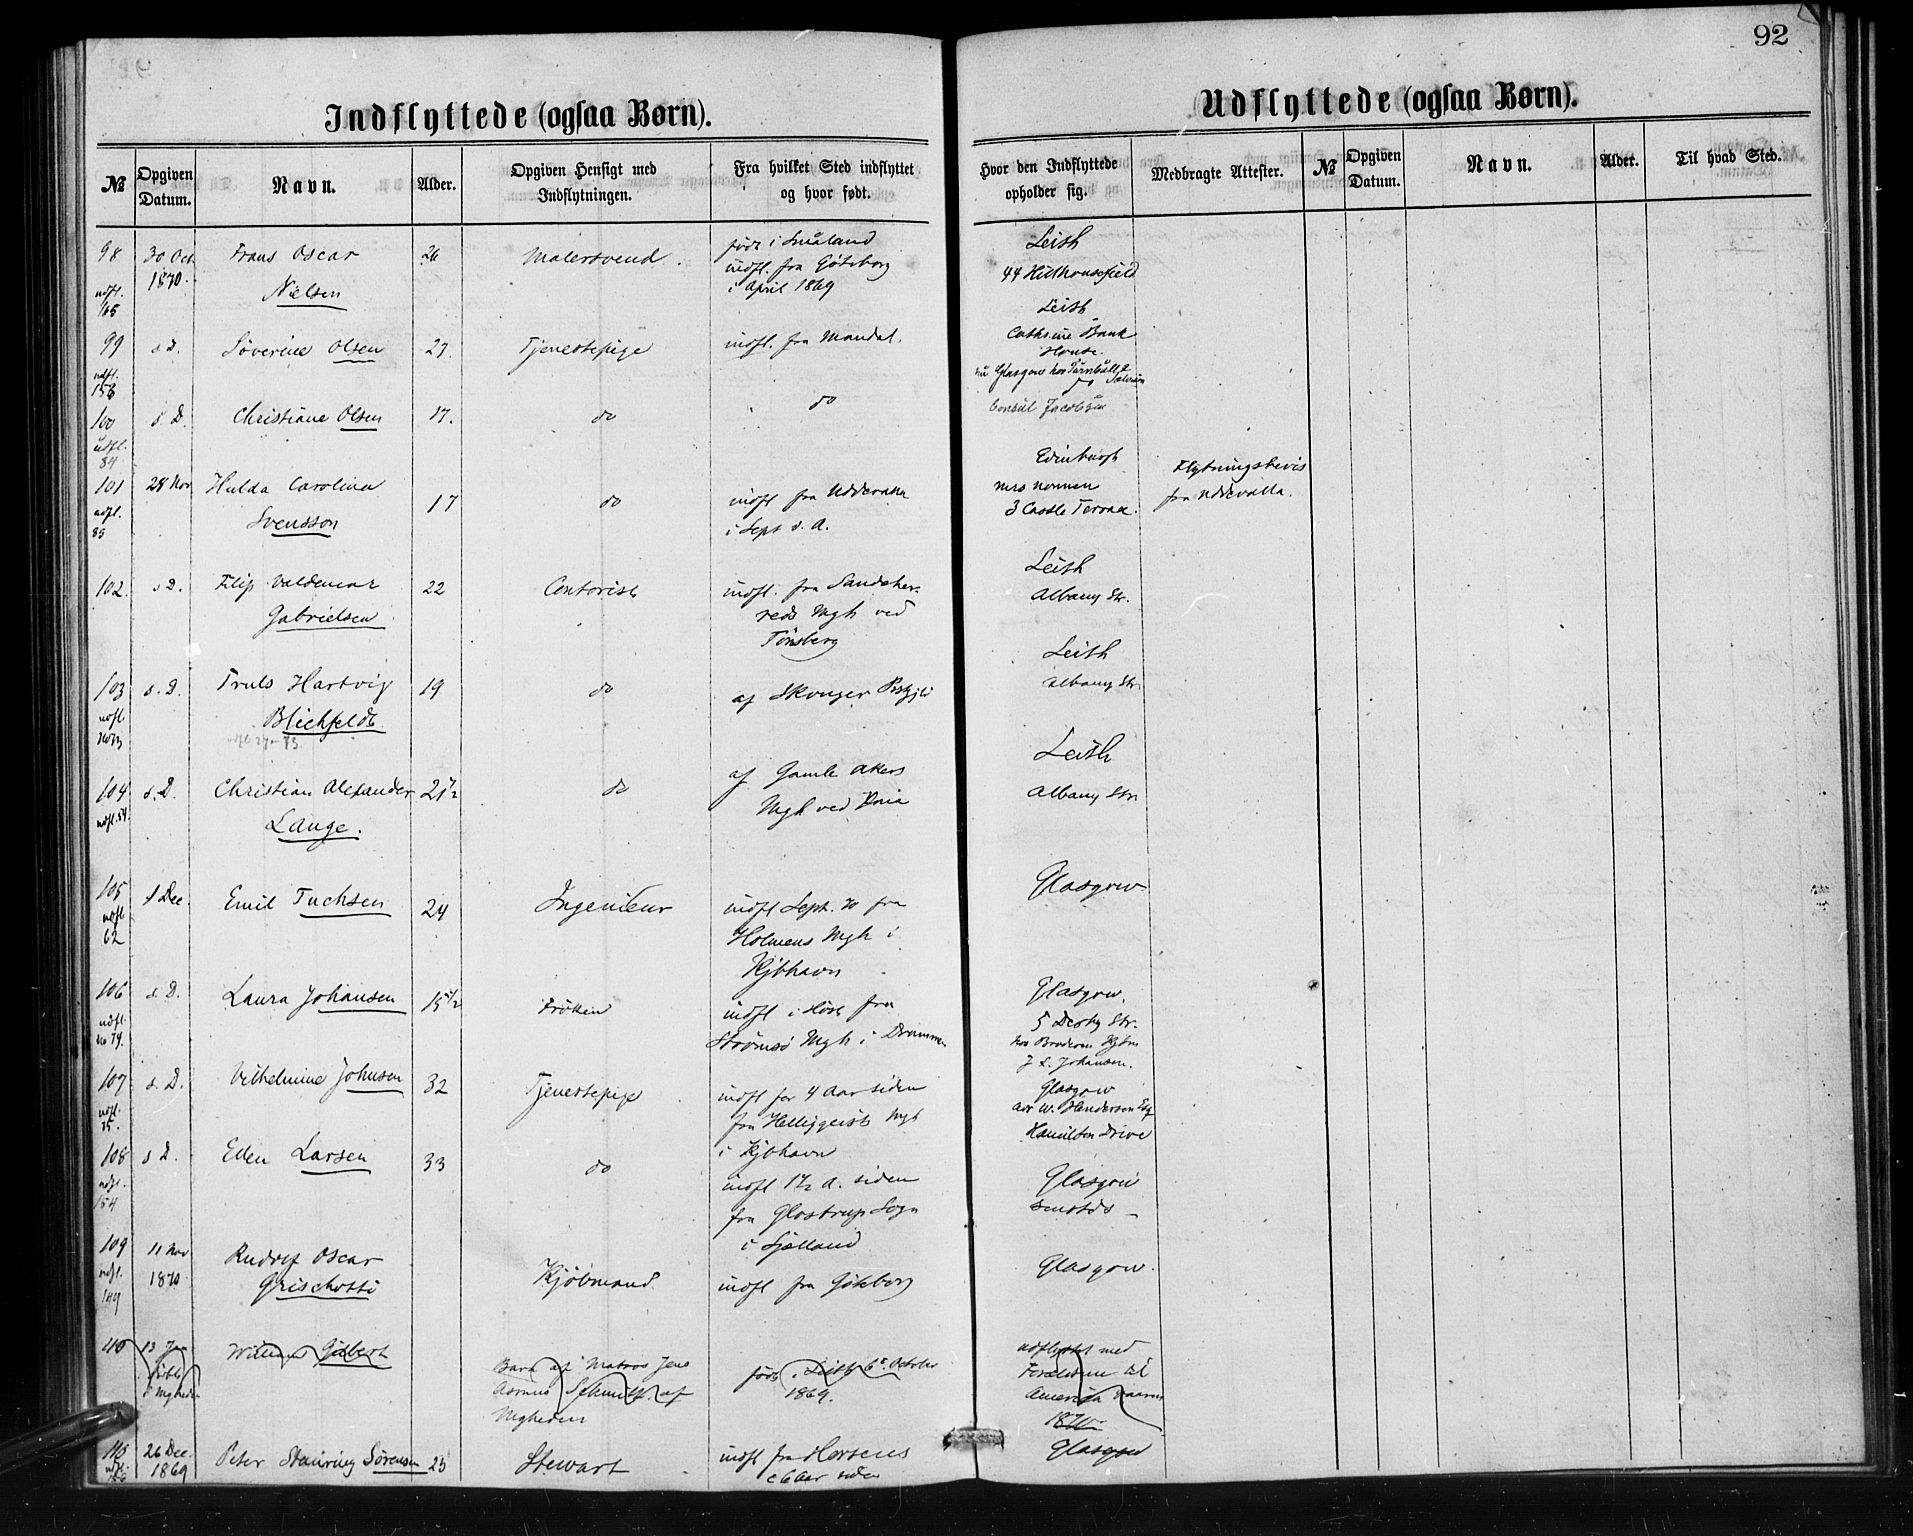 92
Indflyttede (ogsaa Børn).
Udflyttede (ogsaa Børn).
№ Opgiven Datum. Navn. Alder. Opgiven Hensigt med Indflytningen. Fra hvilket Sted indflyttet og hvor født. Hvor den Indflyttede opholder sig. Medbragte Attester. № Opgiven Datum. Navn. Alder. Til hvad Sted.
98 30 Oct. Frans Oscar 26 Malersvend. født i Småland Leith
udfl. 1870. Nielsen indfl. fra Göteborg 44 Hillhousefield
165 i April 1869
99 s. D. Søverine Olsen 27. Tjenestepige indfl. fra Mandal. Leith
udfl. Bank House.
156 nu Glasgow hos
100 s. D. Christiane Olsen 17. do do do
udfl. Consul Jacobsen
84
101 28 Nov Hulda Carolina 17 do indfl fra Uddevalla Edinburgh Flytningsbevis
udfl. Svensson i Sept s. A. Mrs Nonnen fra Uddevalla.
85 3 Castle Terrace.
102. s D. Filip Valdemar 22 Contorist indfl. fra Sandeher- Leith
Gabrielsen reds Mgh ved Albany Str.
Tönsberg
103 s. D. Truls Hartvig 19 do af Skouger Leith
udfl Blichfeldt Albany Str.
104 s. D. Christian Alexander 21½ do af Gamle Akers Leith
udfl. 54. Lange. Mgh ved Xnia Albany Str
105 1 Dec. Emil Tuchsen 24 Ingenieur indfl Sept. 70 fra Glasgow
udfl Holmens Mgh i
62 Kjbhavn
106 s. D. Laura Johansen 15½ Frøken indfl i Høst fra Glasgow.
udfl. Strömsö Mgh i Drammen 5 Derby Str.
No 79. hos Broderen
J. L. Johansen.
107 s. D. Vilhelmine Johnsen 32 Tjenestepige indfl for 4 Aar siden Glasgow
udfl. fra Helliggeists Mgh adr W. Henderson Esq
75. i Kjbhavn Hamilton Drive
108 s D. Ellen Larsen 33 do indfl 1½ A. siden Glasgow
udfl. fra Glostrup Sogn
154 i Sjælland
109 11 Nov Rudolf Oscar Kjöbmand. indfl fra Göteborg Glasgow.
udfl. 1870 Grischotti
149
110 13 Jan William Gilbert Barn af Matros Jens født i Leith 6t October udflyttet med
Asmus Schmidt af 1869. Forældrene til
Mgheden America
1870
110 26 Dec. Peter Stauning Sørensen 25 Stewart indfl fra Horsens Glasgow
udfl. 1869 c 6 Aar siden